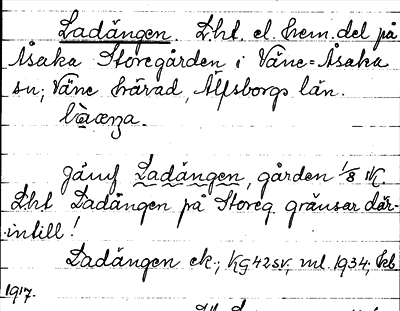 Ladängen. Lht. el. hem. del på
Åsaka Storegården i Väne-Åsaka
sn; Väne härad, Älfsborgs län.
Jämf Ladängen, gården 1/8
Lht Ladängen på Storeg. gränsar där-
intill!
Ladängen ek.; KG42SV, ml. 1934, feb
1917.